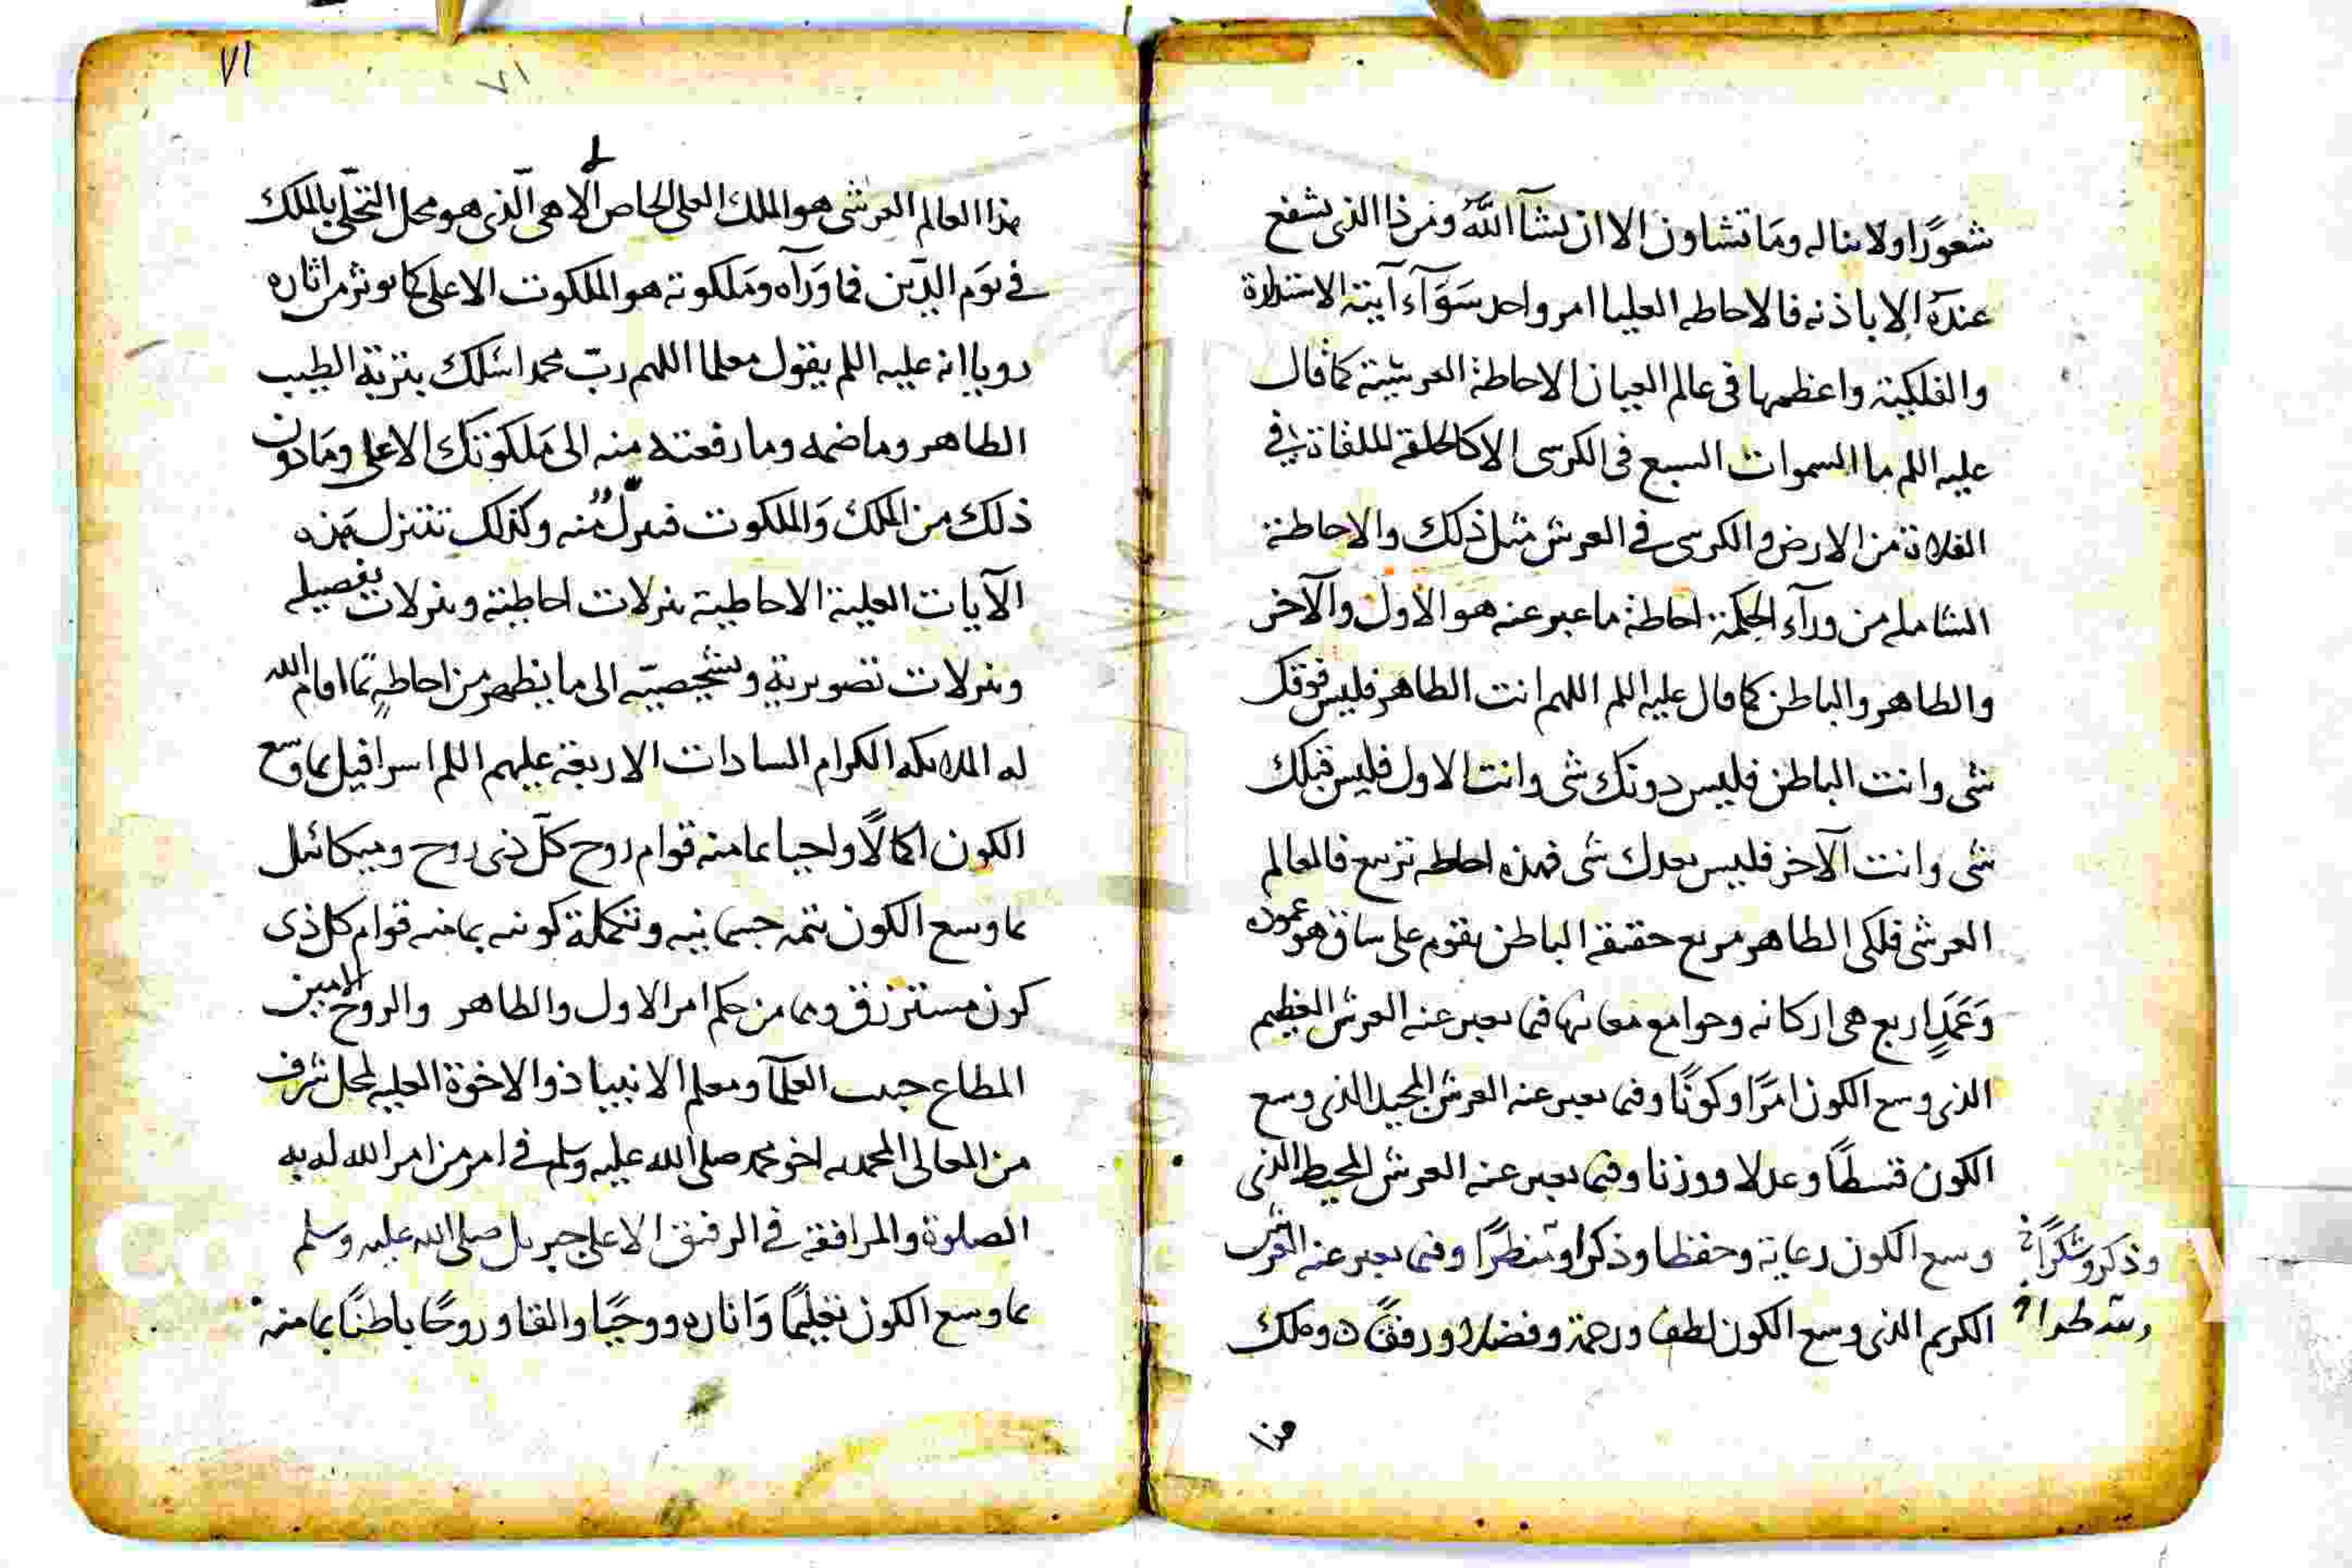 شعورًا ولا يناله وما تشاون الا ان يشآ الله ومن ذا الذى يشفع
عنده الا باذنه فالاحاطه العليا امر واحد سوآء آيته الاستدارة
والفلكية واعظمها فى عالم العيان الاحاطة العرشية كما قال
عليه السلم ما السموات السبع فى الكرسى الا كالحلقة الملقاة فى
الفلاة من الارض والكرسى فى العرش مثل ذلك والاحاطة
الشامله من ورآء الحكمة احاطة ما عبر عنه هو الاول والآخر
والظاهر والباطن كما قال عليه السلم اللهم انت الظاهر فليس فوقك
شى وانت الباطن فليس دونك شى وانت الاول فليس قبلك
شى وانت الآخر فليس بعدك شى فهذه احاطه تربيع فالعالم
العرشى فلكى الظاهر مربع حقيقة الباطن يقوم على ساق هو عموده
وعمد اربع هى اركانه وجوامع معانيها فيما يعبر عنه العرش العظيم
الذى وسع الكون امرًا وكونًا وفيما يعبر عنه العرش المجيد الذى وسع
الكون قسطًا وعدلا ووزنا وفيما يعبر عنه العرش المحيط الذى
وسع الكون رعاية وحفظا وذكرا وتنظرًا وفيما يعبر عنه العرش
الكريم الذى وسع الكون لطفا ورحمة وفضلا ورفقًا وملك
وذكر وشكرًا
هذا
٧١
٧١
هذا العالم العرشى هو الملك العلى الخاص الالاهى الّذى هو محل التجلّى بالملك
فى يوم الدّين فما ورآه وملكوته هو الملكوت الاعلى كما يوثر من اثاره
رويا انه عليه السلم يقول معلما اللهم ربّ محمد اسلك بتربة الطيب
الطاهر وما ضمه وما رفعته منه الى ملكوتك الاعلى وما دون
ذلك من الملك والملكوت فنزل منه وكذلك تتنزل هذه
الآيات العلية الاحاطية تنزلات احاطية وتنزلات تفصيله
وتنزلات تصويرية وتشخيصيّه الى ما يظهر من احاطةٍ ممّا اقام الله
له الملايكه الكرام السادات الاربعة عليهم السلم اسرافيل بما وسع
الكون اكمالًا واحيا بما منه قوام روح كلّ ذى روح وميكائيل
بما وسع الكون تتمه جسمانيه وتكملة كونيه بما منه قوام كل ذى
كون مسترزق وبما من حكم امر الاول والظاهر والروح الامين
المطاع حبيب العلمآ ومعلم الانبيا ذو الاخوة العليه لمحل شرف
من المعالى المحمديه اخو محمد صلى الله عليه وسلم فى امر من امر الله له به
الصلوة والمرافقة فى الرفيق الاعلى جبريل صلى الله عليه وسلم
بما وسع الكون تعليمًا وانارة ووحيًا والقا وروحًا باطنًا بما منه